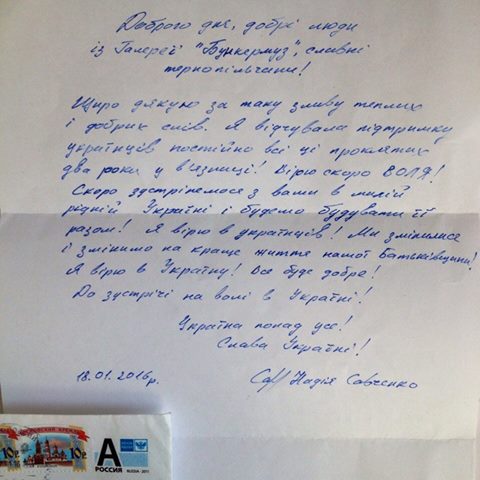 Доброго дня, добрі люди
із Галереї "Бункермуз", славні
тернопільчани!
Щиро дякую за таку зливу теплих
і добрих слів. Я відчувала підтримку
українців постійно всі ці прокляті
два роки у в'язниці! Вірю скоро
Скоро зустрінемося з вами в милій
рідній Україні і будемо будувати її
разом! Я вірю в українців! Ми змінилися
і змінимо на краще життя нашої Батьківщини!
Я вірю в Україну! Все буде добре!
До зустрічі на волі в Україні!
Україна понад усе!
Слава Україні!
18.01.2016р.
Надія Савченко
10р
МОСКОВСКИЙ КРЕМЛЬ
10р
А
РОССИЯ
RUSSIA · 2011